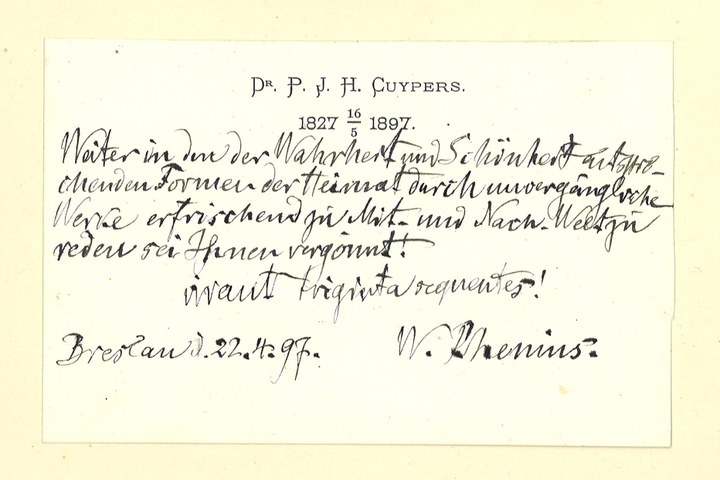 Dr. P. J. H. Cuypers.
1827 16/5 1897.
Weiter in den der Wahrheit und Schönheit entspre-
chenden Formen der Heimat durch unvergängliche
Werke erfrischend zu Mit- und Nach-Welt zu
reden sei Ihnen vergönnt!
vivant triginta sequentes!
Breslau d. 22.4.97. W. Rhenius.